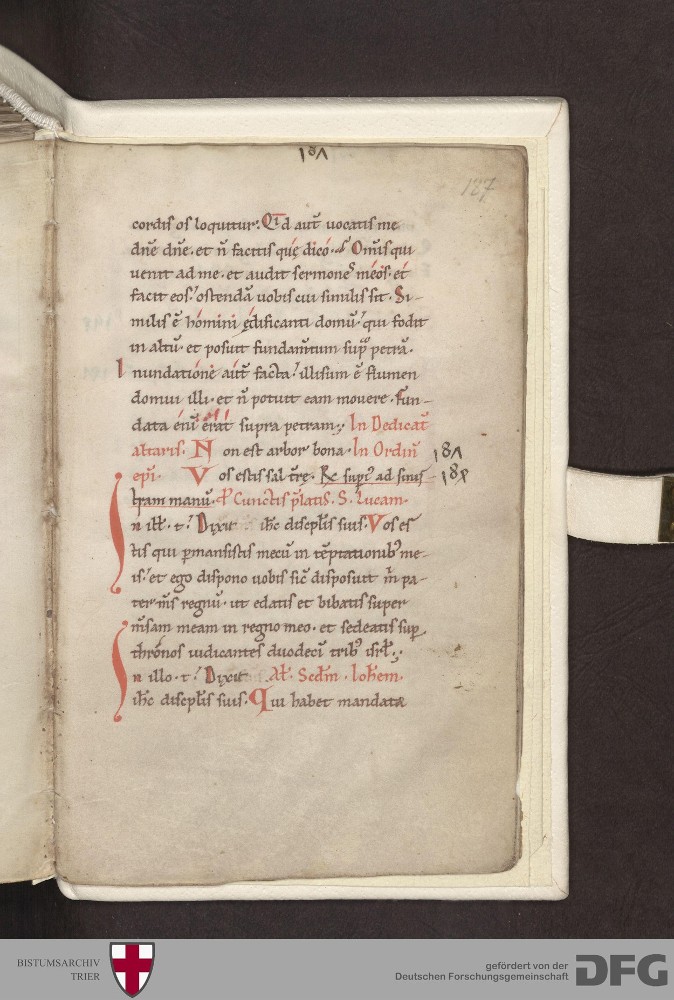 18Λ
127
cordis os loquitur. Q̅d aut̅ uocatis me
dn̅e dn̅e. et n̅ facitis quę dico. Om̅is qui
uenit ad me. et audit sermones meos. et
facit eos. ostenda̅ uobis cui similis sit. Si-
milis e̅ homini ędificanti domu̅. qui fodit
in altu̅. et posuit fundam̅tum sup̅ petra̅.
Inundatione aut̅ facta. illisum e̅ flumen
domui illi. et n̅ potuit eam mouere. fun-
data eni̅ erat supra petram. In Dedicat̅
altaris. Non est arbor bona. In Ordin̅
18Λ
ep̅i. Vos estis sal t̅re. Rc̅ supi9 ad sinis-
tram manu̅. Cunctis p̅latis. S. Lucam.
In ill̅. t̅. Dixit ih̅c discip̅lis suis. Vos es-
tis qui p̅mansistis mecu̅ in te̅ptationib9 me-
is. et ego dispono uobis sic̅ disposuit m̅ pa-
ter m̅s regnu̅. ut edatis et bibatis super
m̅sam meam in regno meo. et sedeatis sup̅
thronos iudicantes duodeci̅ trib9 isr̅l.
In illo. t̅. Dixit Al̅. Scd̅m. Ioh̅em.
ih̅c discip̅lis suis. Qui habet mandata
BISTUMSARCHIV
TRIER
gefördert von der
Deutschen Forschungsgemeinschaft
DFG